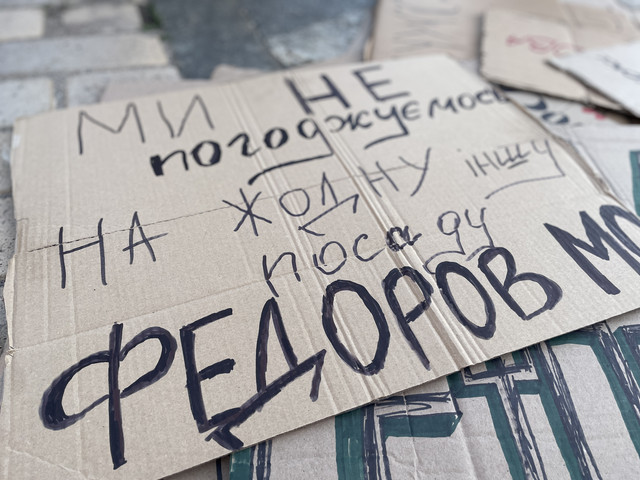 МИ НЕ
погоджуємось
НА ЖОДНУ іншу
посаду
ФЕДОРОВ МО